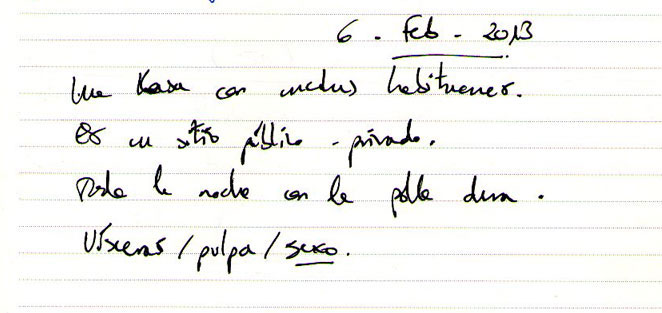 6 - Feb - 2013
Una Kasa con muchas habitaciones.
Es un sitio público - privado.
Toda la noche con la polla dura.
Vísceras / pulpa / sexo.